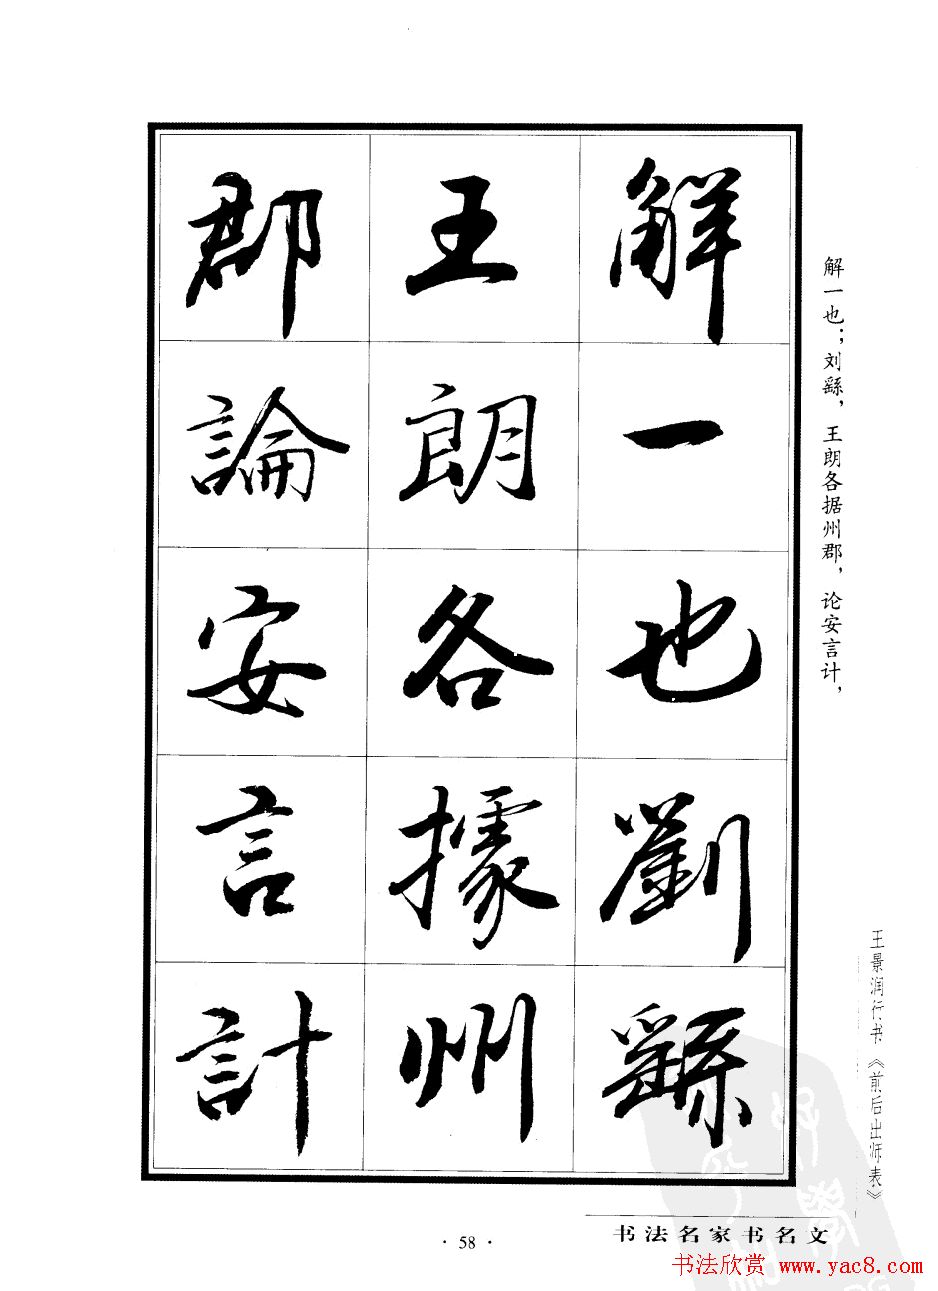 解一也劉繇
王朗各據州
郡論安言計
解一也；刘繇，王朗各据州郡，论安言计，
王景润行书《前后出师表》
书法名家书名文
· 58 ·
书法欣赏 www.yac8.com